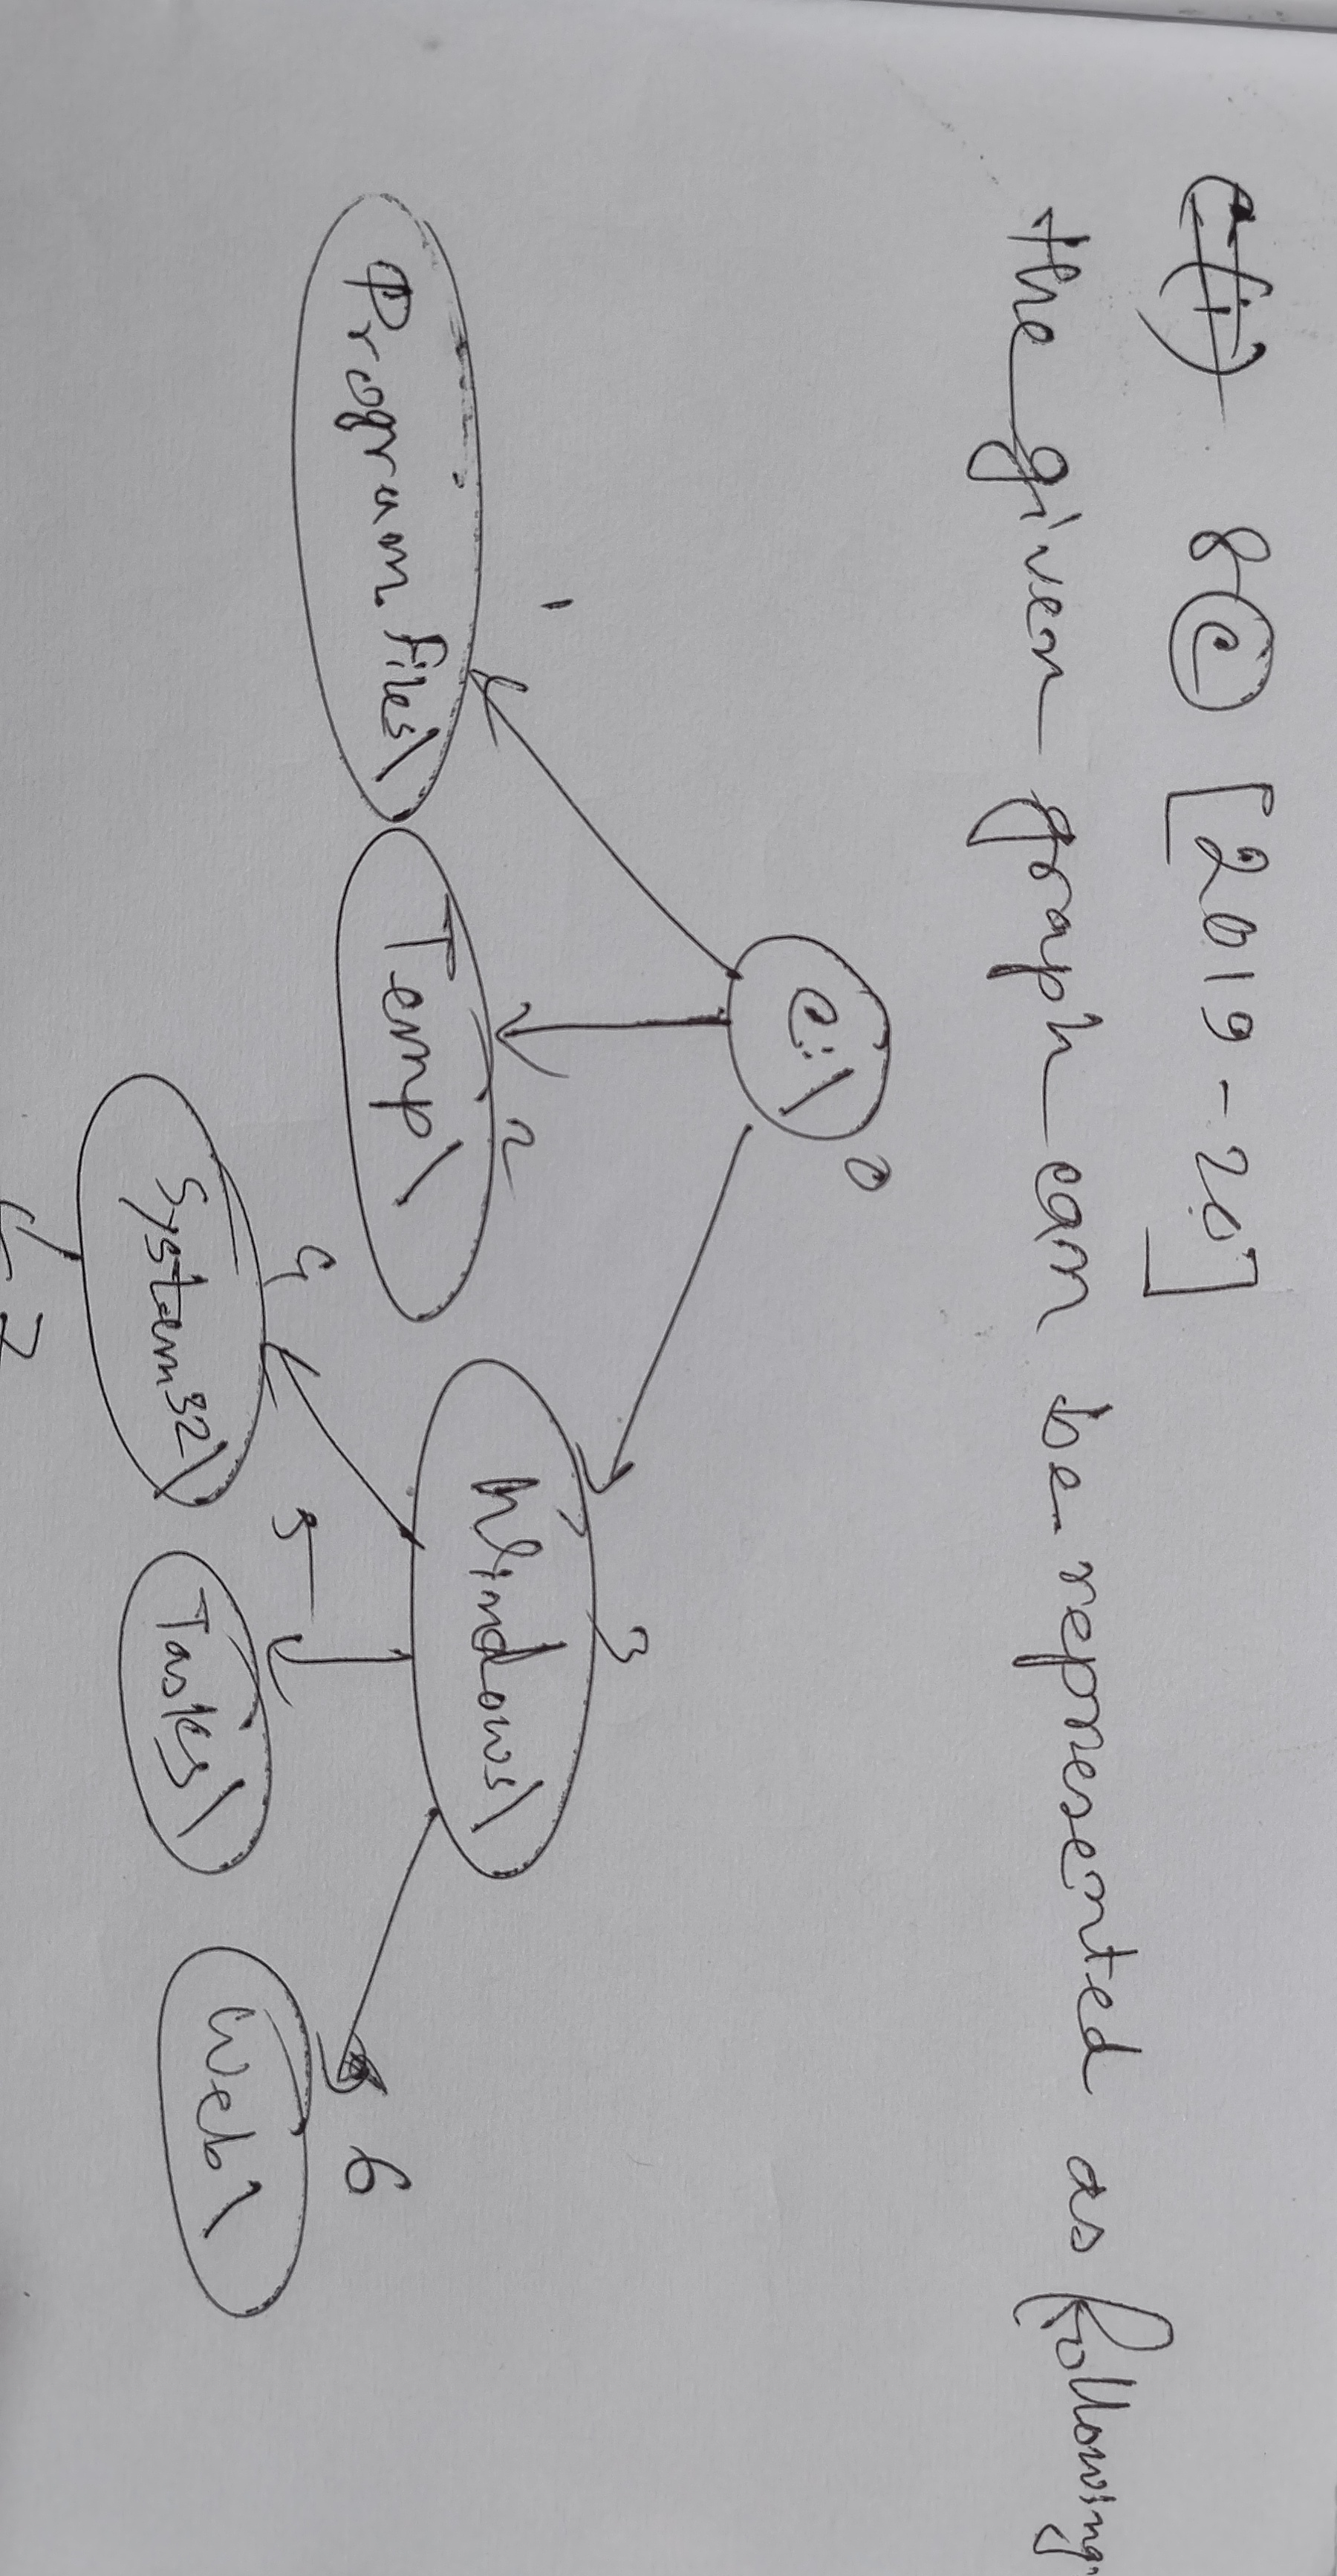 8(c) [2019-20]
the given graph can be represented as following
C:\ 0
1 2 3
Program files\ Temp\ Windows\
4 5 6
System32\ Tasks\ Web\
7